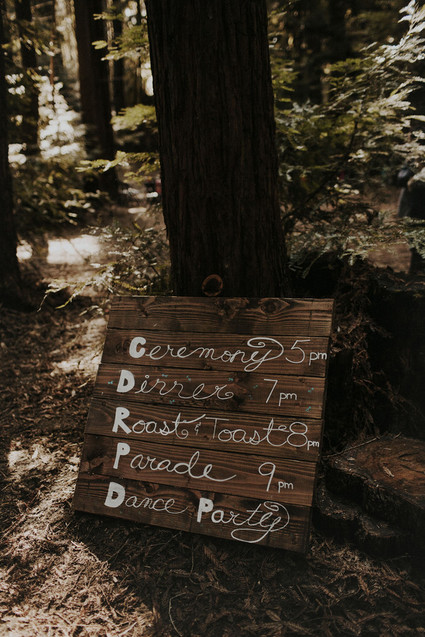 Ceremony 5pm
Dinner 7pm
Roast & Toast 8pm
Parade 9pm
Dance Party